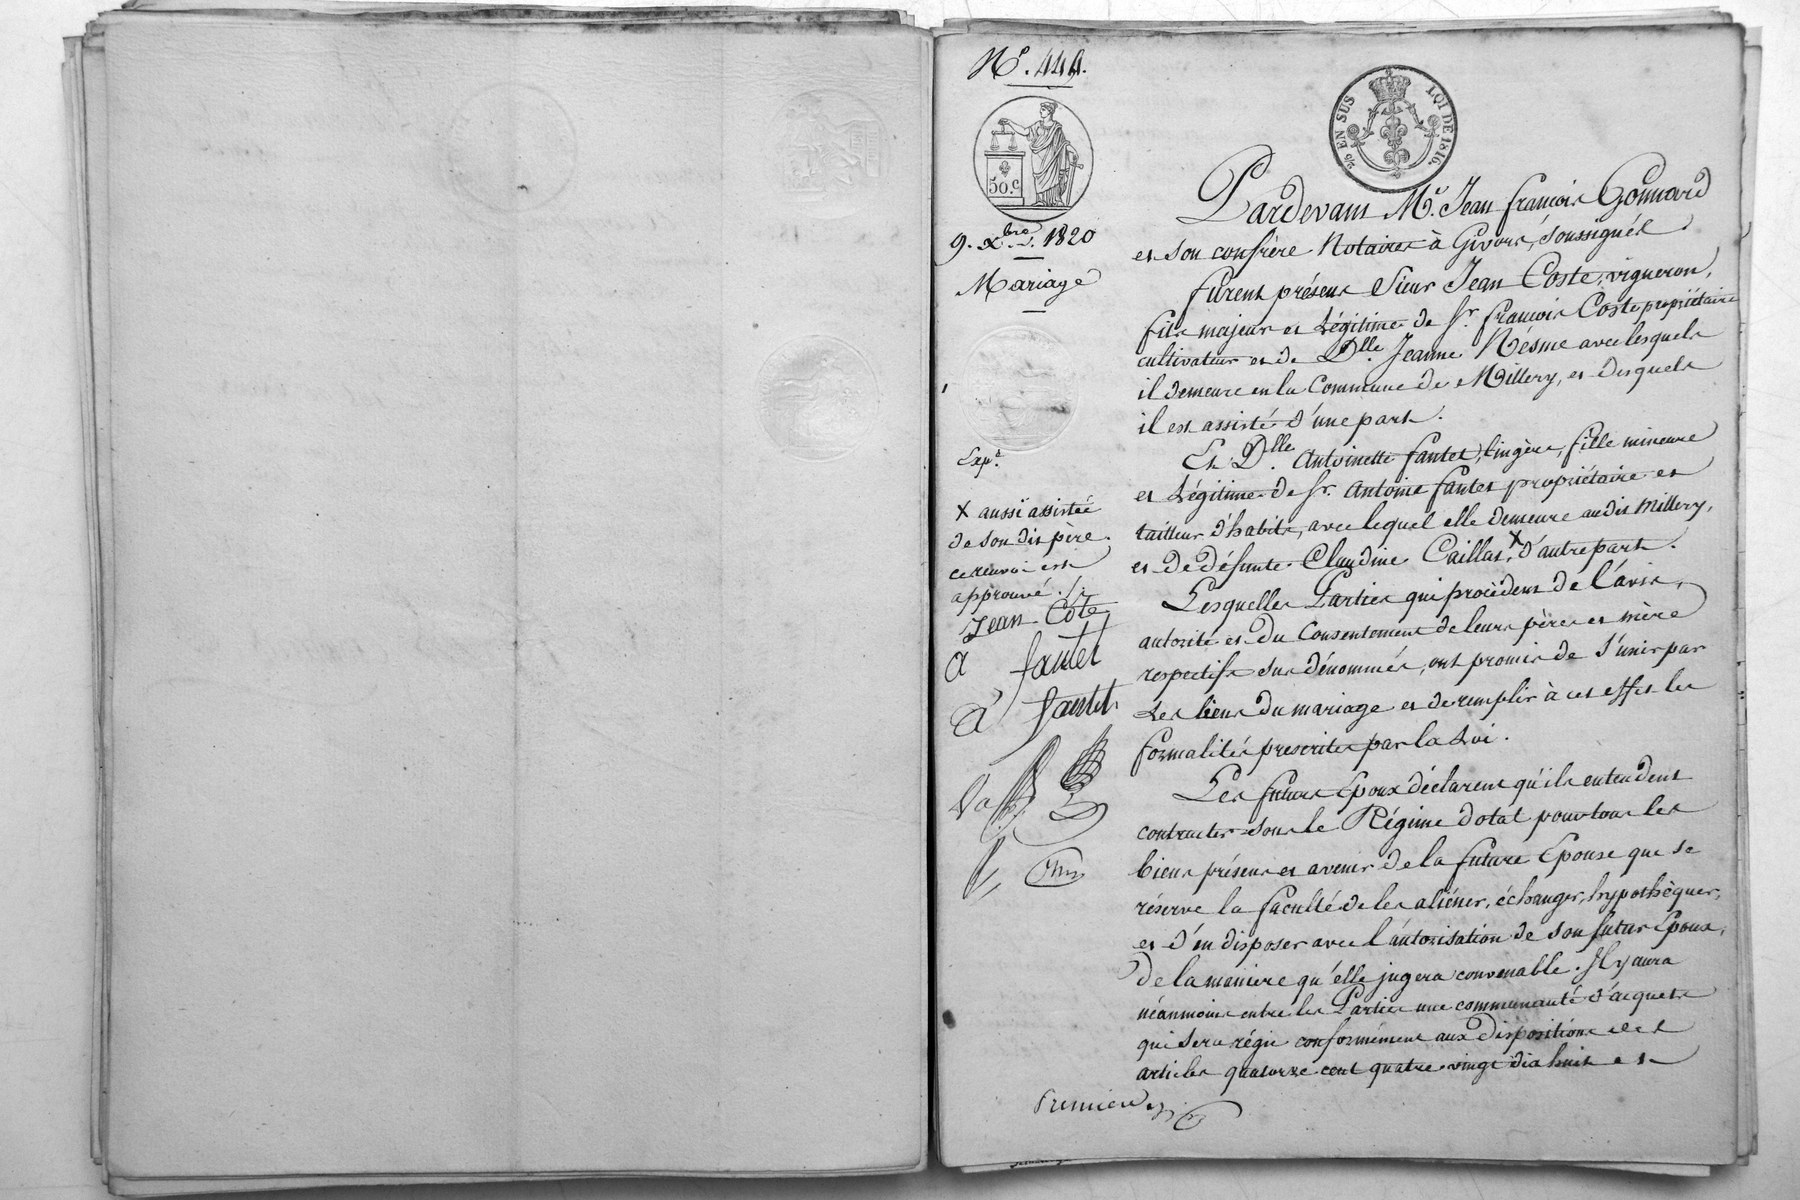 N.º 444.
50.c
1/10 EN SUS LOI DE 1816.
9. Xbre. 1820
Mariage
Expé.
X aussi assistée
de son dit père.
ce renvoi est
approuvé ./.
Jean Côte
A fantet
A fantet
Pardevant Me. Jean françois Gonnard
et son confrère Notaires à Givors, soussignés
furent présens Sieur Jean Coste, vigneron,
fils majeur et légitime de Sr. françois Coste propriétaire
cultivateur et de Dlle. Jeanne Nésme avec lesquels
il demeure en la Commune de Millery, et desquels
il est assisté d'une part.
Et Dlle. Antoinette fantet, lingère, fille mineure
et légitime de Sr. Antoine fantet propriétaire et
tailleur d'habits, avec lequel elle demeure audit Millery,
et de défunte Claudine Caillat, X d'autre part.
Lesquelles Parties qui procèdent de l'avis,
autorité et du Consentement de leurs pères et mère
respectifs sus dénommés, ont promis de s'unir par
les liens du mariage et de remplir à cet effet les
formalités prescrites par la Loi.
Les futurs Epoux déclarent qu'ils entendent
contracter sous le Régime dotal pour tous les
biens présens et avenir de la future Epouse que se
réserve la faculté de les aliéner, échanger, hypothèquer,
et d'en disposer avec l'autorisation de son futur Epoux,
de la manière qu'elle jugera convenable. Il y aura
néanmoins entre les Parties une communauté d'acquets
qui sera régie conformément aux dispositions des
articles quatorze cent quatre vingt dix huit et
Premiere